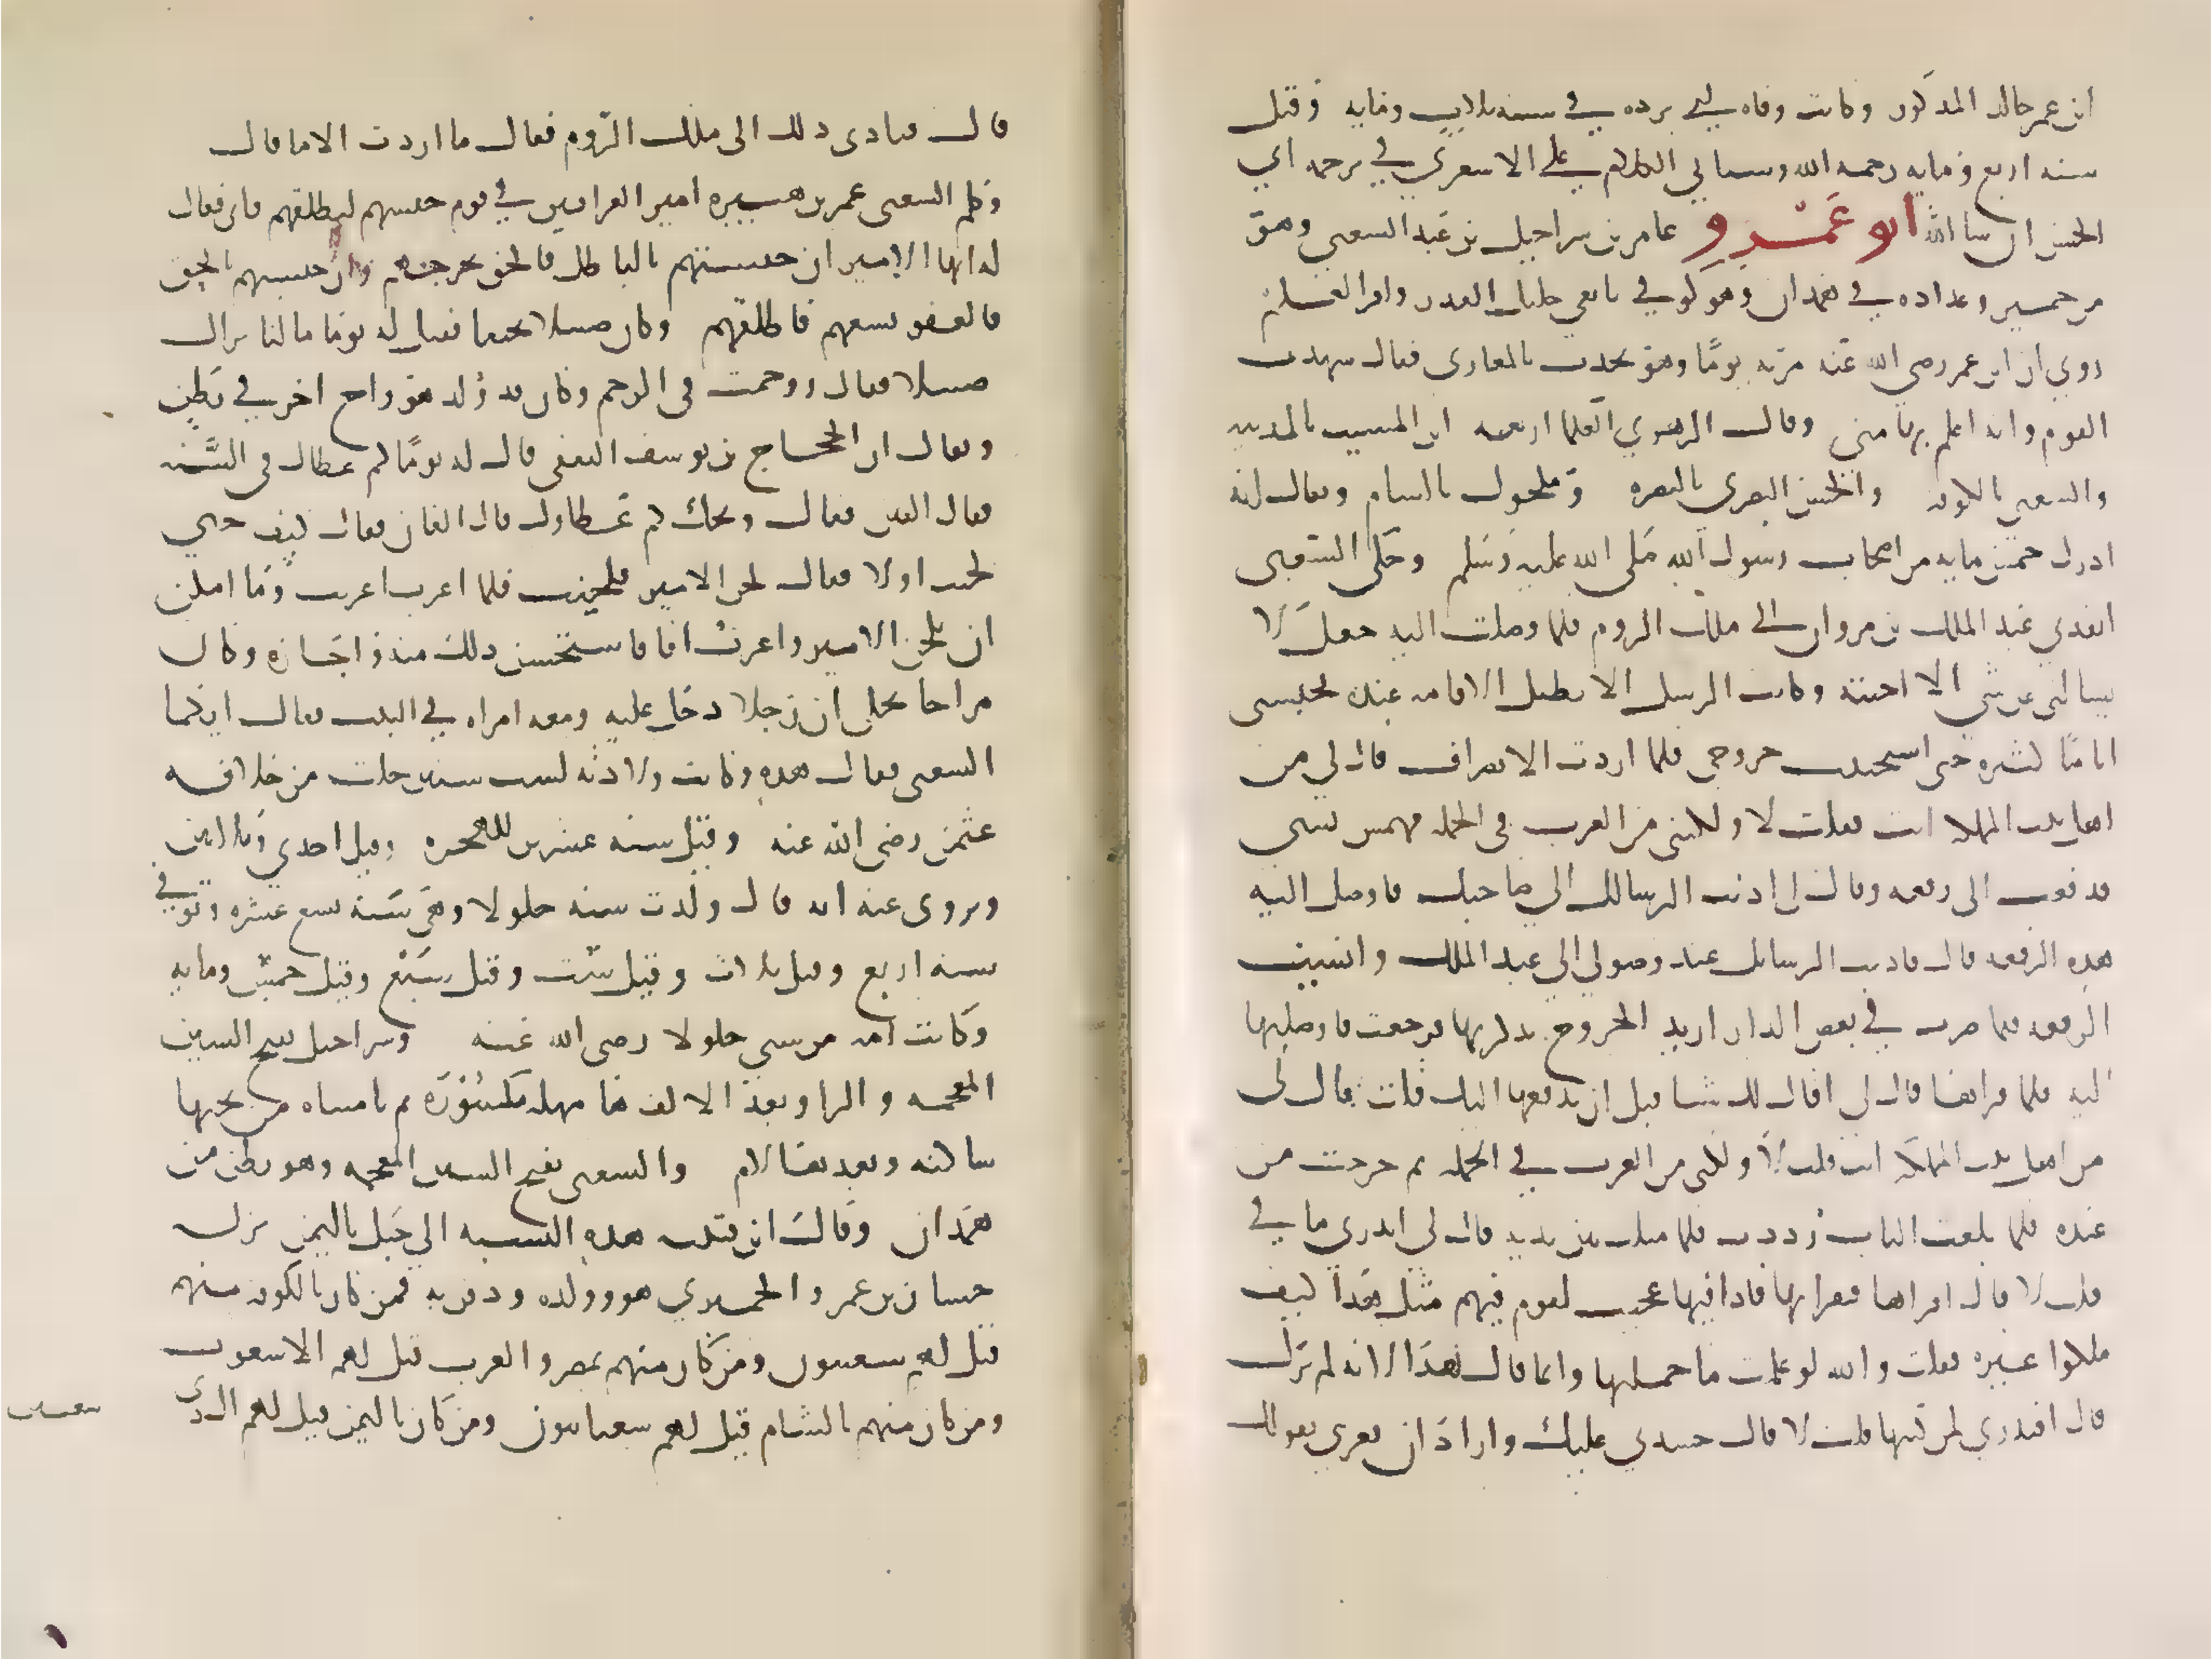 ابن عمر خالد المذكور وكانت وفاه ابي برده في سنه ثلاث ومايه وقيل
سنه اربع ومايه رحمه الله وسياتي الكلام على الاشعري في ترجمه ابي
الحسن ان شا الله ابو عَمْرٍو عامر بن شراحيل بن عَبد الشعبي وهو
من حمير وعداده في همدان وهو كوفي تابعي جليل القدر وافر العلم
روي ان ابن عمر رضي الله عنه مر به يومًا وهو يحدث بالمغازي فقال شهدت
القوم وانه اعلم بها مني وقال الزهري العلما اربعه ابن المسيب بالمدينه
والشعبي بالكوفه والحسن البصري بالبصره ومكحول بالشام ويقال انه
ادرك خمس مايه من اصحاب رسول الله صَلى الله عليه وسَلم وحكى الشعبي
انفذني عَبد الملك بن مروان الى ملك الروم فلما وصلت اليه جعل لا
يسالني عن شي الا اجبته وكانت الرسل لا تطيل الاقامه عنده فحبسني
اياما كثيره حتى استحثثت خروجي فلما اردت الانصراف قال لي من
اهل بيت المملكه انت فقلت لا ولكني من العرب في الجمله فهمس بشي
فدفعت الي رقعه وقال لي اذا اديت الرسايل الى صاحبك فاوصل اليه
هذه الرقعه قال فاديت الرسايل عند وصولي الى عبد الملك وانسيت
الرقعه فلما صرت في بعض الدار اريد الخروج تذكرتها فرجعت فاوصلتها
اليه فلما قراها قال لي اقال لك شيا قبل ان يدفعها اليك قلت قال لي
من اهل بيت المملكه انت قلت لا ولكني من العرب في الجمله ثم خرجت من
عنده فلما بلغت الباب رُددت فلما مثلت بين يديه قال لي اتدري ما في
قلت لا قال اقراها فقراتها فاذا فيها عجبت لقوم فيهم مثل هَذا كيف
ملكوا غيره فقلت والله لو علمت ما حملتها وانما قال هَذا لانه لم يَرَك
قال افتدري لم كتبها قلت لا قال حسدني عليك وارادَ ان يغريني بقتلك
قال فتادى ذلك الى ملك الرّوم فقال ما اردت الا ما قال
وكلم الشعبي عمر بن هبيره امير العراقين في قوم حبسهم ليطلقهم فابى فقال
له ايها الامير ان حبستهم بالباطل فالحق يخرجهم وان حبستهم بالحق
فالعفو يسعهم فاطلقهم وكان ضييلا نحيفا فقيل له يومًا ما لنا نراك
ضييلا فقال زوحمت في الرحم وكان قد وُلد هو واخ اخر في بَطن
ويقال ان الحجاج بن يوسف الثقفي قال له يومًا كم عطاك في السَّنه
فقال الفين فقال ويحك كم عَطاوك قال الفان فقال كيف
لحنت اولا فقال لحن الامير فلحنت فلما اعرب اعربت ومَا امكن
ان يلحن الامير واعرب انا فاستحسن ذلك منه واجَازه وكان
مزاحا يحكى ان رَجلا دخل عليه ومعه امراه في البيت فقال ايكما
الشعبي فقال هذه وكانت ولادته لست سنين خلت من خلافه
عثمن رضي الله عنه وقيل سنه عشرين للهجره وقيل احدي وثلاثين
ويروى عنه انه قال ولدت سنه جلولا وهيَ سَنه تسع عشره وتوفي
سنه اربع وقيل ثلاث وقيل سِت وقيل سَبْع وقيل خمس ومايه
وكانت امه من سبي جلولا رضي الله عَنه وشراحيل بفتح الشين
المعجمه والرا وبعد الالف حا مهمله مكسُورَة ثم يا مثناه من تحتها
ساكنه وبعدها لام والشعبي بفتح الشين المعجمه وهو بطن من
همدان وقال ابن قتيبه هذه النسبه الي جَبل باليمن نزله
حسان بن عمرو الحميري هو وولده ودفن به فمن كان بالكوفه منهم
قيل لهم شعبيون ومن كان منهم بمصر والعرب قيل لهم الاشعوب
ومن كان منهم بالشام قيل لهم شعبانيون ومن كان باليمن قيل لهم ال ذي
شعبين